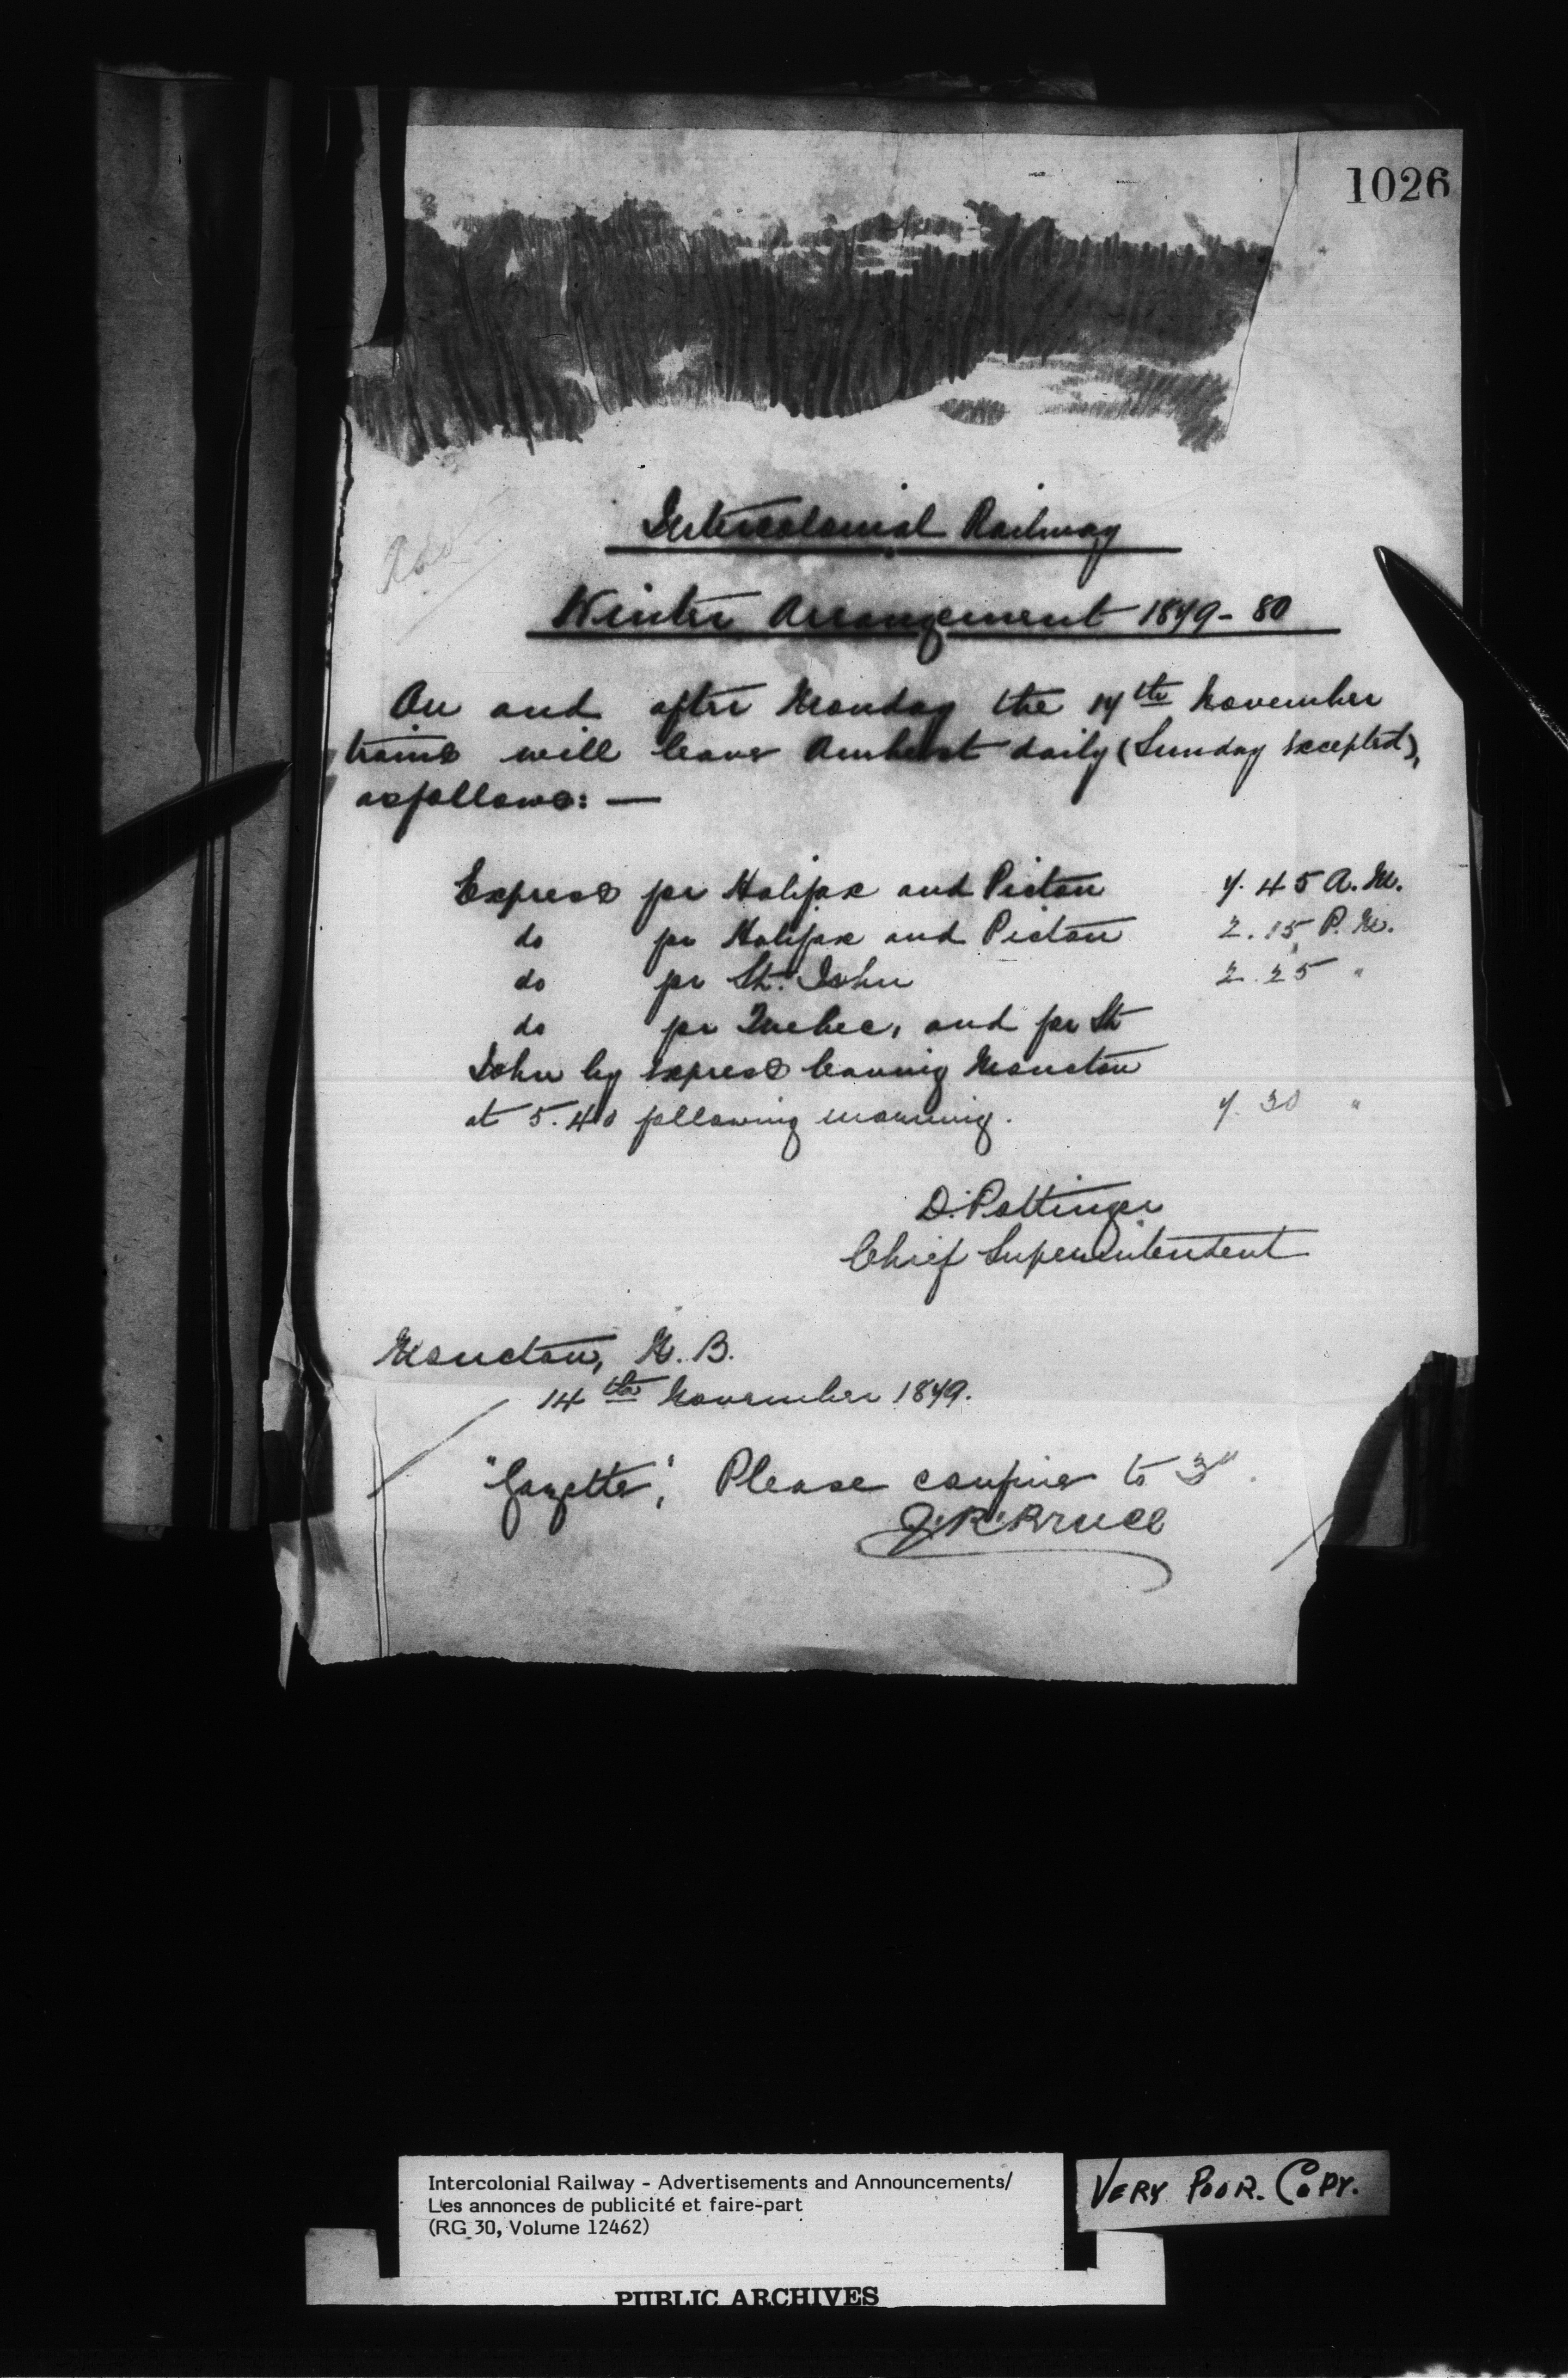 1026
Intercolonial Railway
Winter Arrangement 1879-80
On and after Monday the 17th November
trains will leave Amherst daily (Sunday excepted),
as follows: —
Express for Halifax and Pictou 7.45 A.M.
do for Halifax and Pictou 2.15 P.M.
do for St. John 2.25 "
do for Quebec, and for St
John by express leaving Moncton
at 5.40 following morning. 7.30 "
D. Pottinger
Chief Superintendent
Moncton, N.B.
14th November 1879.
"Gazette," Please confine to 3".
J.R. Bruce
Intercolonial Railway - Advertisements and Announcements/
Les annonces de publicité et faire-part
(RG 30, Volume 12462)
VERY POOR. COPY.
PUBLIC ARCHIVES